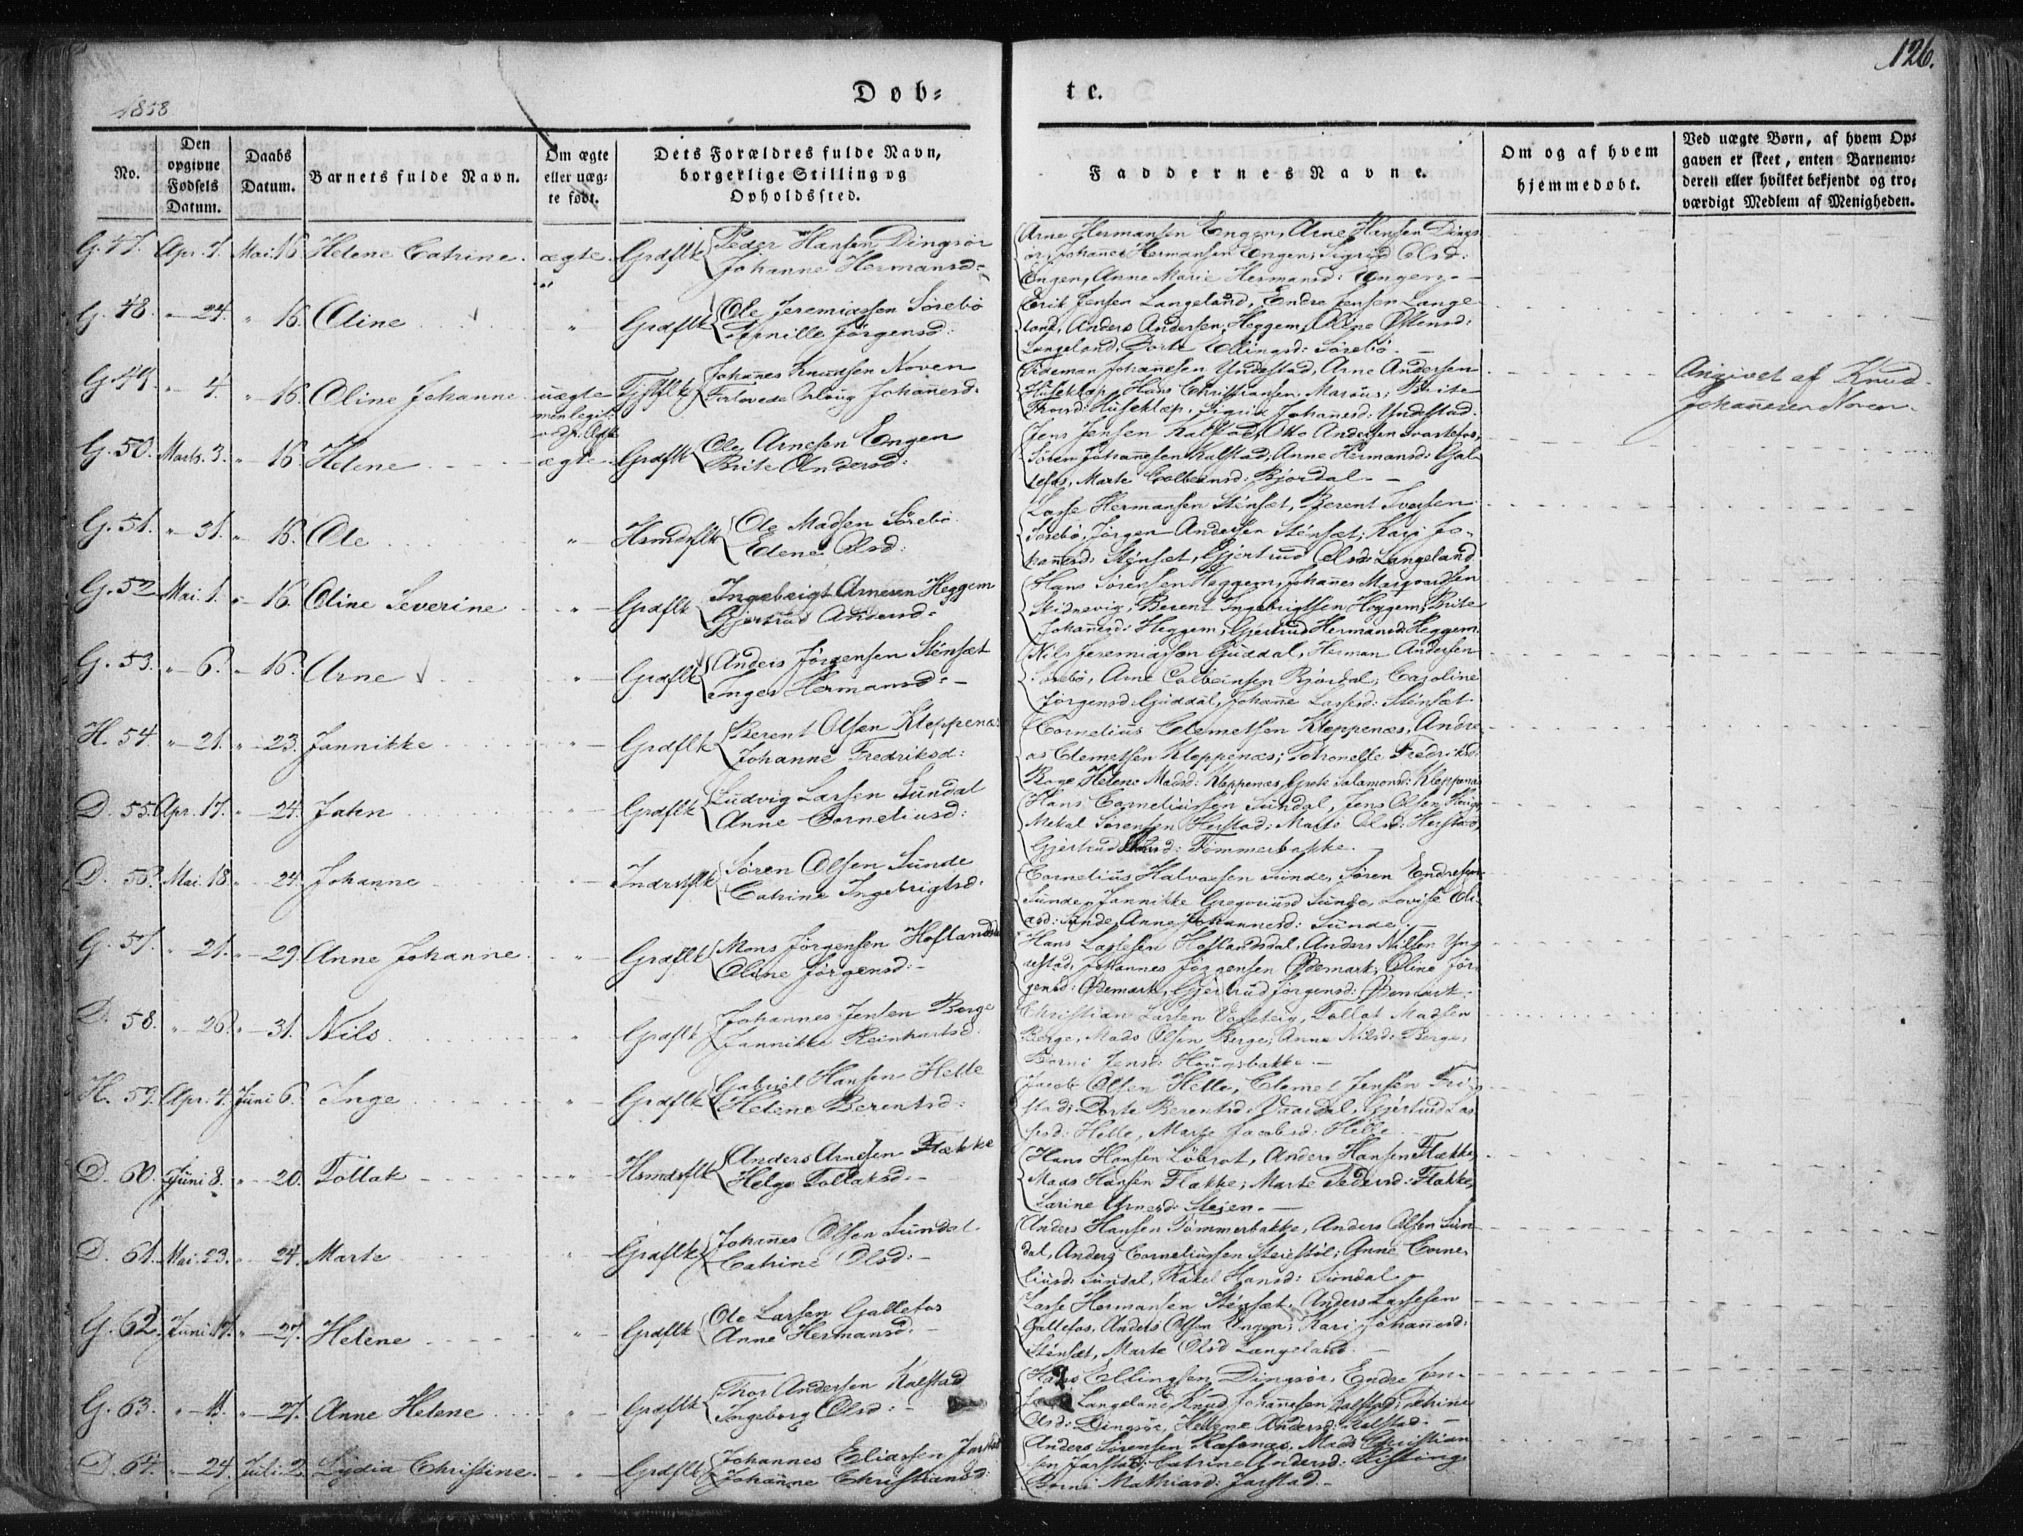 126.
1858
Døb-
te.
No.
Den opgivne Fødsels Datum.
Daabs Datum.
Barnets fulde Navn.
Om ægte eller uægte født.
Dets Forældres fulde Navn, borgerlige Stilling og Opholdssted.
Faddernes Navne.
Om og af hvem hjemmedøbt.
Ved uægte Børn, af hvem Opgaven er skeet, enten Barnemoderen eller hvilket bekjendt og troværdigt Medlem af Menigheden.
G. 47. Apr. 7. Mai 16 Helene Catrine. ægte Grdflk Peder Hansen Dingsør
Johanne Hermansd:
Arne Hermansen Engen, Arne Hansen Dings
ør, Johannes Hermansen Engen; Sigrid Olsd:
Engen, Anne Marie Hermansd: Engen.
G. 48. " 24. " 16. Oline " Grdflk Ole Jeremiassen Sørebø
Pernille Jørgensd:
Erik Jensen Langeland, Endre Jensen Lange
land, Anders Andersen Heggem, Oline
Langeland, Dorte Ellingsd: Sørebø.
G. 49. " 4. " 16. Oline Johanne uægte Johannes Knudsen Noven
Forlovede Johannesd.
Tideman Johannesen Yndestad, Arne Andersen
Huseklep, Hans Christiansen Brite
Thorsd: Huseklep, Johannesd: Yndestad.
Angivet af Knud
Johannesen Noven.
G. 50. Marts. 3. " 16. Helene ægte Grdflk Ole Arnesen Engen
Brite Andersd:
Jens Jensen Kalstad, Otto Andersen Svartefos,
Søren Johannesen Kalstad; Anne Hermansd: Gal
lefos, Marte Colbeinsd: Bjordal.
G. 51. " 31. " 16. Ole " Hsmdsflk Ole Madsen Sørebø
Edene Olsd:
Lasse Hermansen Stensæt, Berent Iversen
Sørebø, Jørgen Andersen Stensæt; Kari Jo-
hannesd: Stensæt, Gjertrud Olsd: Langeland.
G. 52 Mai. 1. " 16. Oline Severine " Grdflk Ingebrigt Arnesen Heggem
Gjertrud Andersd:
Hans Sørensen Heggem, Johannes
Berent Ingebrigtsen Heggem; Brite
Johannesd: Heggem, Gjertrud Hermansd: Heggem.
G. 53. " 6. " 16. Arne " Grdflk Anders Jørgensen Stensæt
Inger Hermansd:
Nils Jeremiassen Guddal, Herman Andersen
Sørebø, Arne Colbeinsen Bjordal; Caroline
Jørgensd: Guddal, Johanne Lassesd: Stensæt.
H. 54. " 21. " 23. Jannikke " Grdflk Berent Olsen Kleppenæs
Johanne Fredriksd:
Cornelius Clemetsen Kleppenæs, Andre-
as Clemetsen Kleppenæs; Petronelle Frederiksd:
Helene Madsd: Kleppenæs, Salamonsd: Kleppenæs
D. 55. Apr. 17. " 24. Jahn " Grdflk Ludvig Larsen Sundal
Anne Corneliusd:
Hans Corneliussen Sundal, Jens Olsen
Mekal Sørensen Herstad; Marte Olsd: Herstad,
Gjertrud Tømmerbakke.
D. 56. Mai. 18. " 24. Johanne Indrstflk Søren Olsen Sunde
Catrine Ingebrigtsd.
Cornelius Halvorsen Sunde, Søren Endresen
Sunde, Jannikke Gregoriusd Sunde, Lovise Oli-
asd: Sunde, Anne Johannesd: Sunde.
G. 57. " 21. " 29. Anne Johanne " Grdflk Mons Jørgensen Hoflandsdal
Oline Jørgensd:
Hans Lassesen Hoflandsdal, Anders Nilsen Yn
destad, Johannes Jørgensen Ødemark; Oline Jør
gensd: Ødemark, Gjertrud Jørgensd: Ødemark.
D. 58. " 26. " 31. Nils " Grdflk Johannes Jensen Berge
Jannikke Reinhartsd.
Christian Larsen Tollak Madsen
Berge, Mads Olsen Berge; Anne Nilsd: Berge,
Borni Jensd: Hougsbakke.
H. 59. Apr. 4. Juni 6. Inge " Grdflk Gabriel Hansen Helle
Helene Berentsd:
Jacob Olsen Helle, Clemet Jensen
Dorte Berentsd. Vaardal, Gjertrud La-
Helle, Marte Jacobsd: Helle.
D. 60. Juni 8. " 20. Tollak " Hsmdsflk Anders Arnesen Flække
Helge Tollaksd:
Hans Hansen Løbrot, Anders Hansen Flække,
Mads Hansen Flække; Marte Pedersd: Flække,
Larine Arnesd: Steien.
D. 61. Mai. 23. " 24. Marte " Grdflk Johannes Olsen Sundal.
Catrine Olsd:
Anders Hansen Tømmerbakke, Anders Olsen Sun-
dal, Anders Corneliussen Steiestøl; Anne Corne-
liusd: Sundal, Rakel Hansd: Sundal.
G. 62. Juni 17. " 27. Helene " Grdflk Ole Larsen Gallefos
Anne Hermansd:
Lasse Hermansen Stensæt, Anders Lassesen
Gallefos, Anders Olsen Engen; Kari Johannesd:
Stensæt, Marte Olsd Langeland.
G. 63. " 11. " 27. Anne Helene " Grdflk Thor Andersen Kalstad
Ingeborg Olsd:
Hans Ellingsen Dingsør, Endre Jen-
Langeland, Knud Johannesen Kalstad;
Olsd: Dingsør, Helene Andersd: Kalstad.
D. 64. " 24. Juli. 2. Lydia Christine. " Grdflk Johannes Eliassen Jarstad
Johanne Christiansd:
Anders Sørensen Ramsnæs, Mads Christian
sen Jarstad; Catrine Andersd:
Borni Mathiasd: Jarstad.